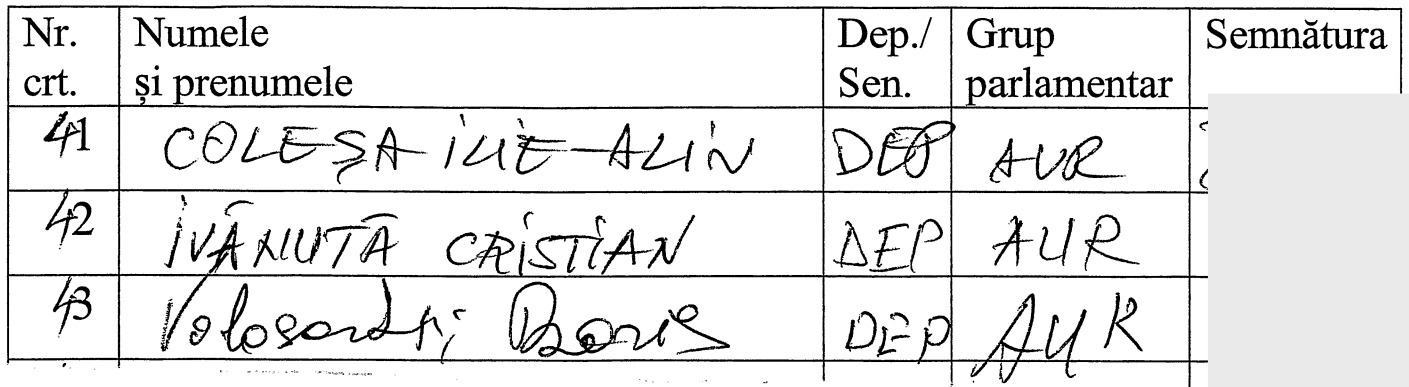 Nr. crt. Numele și prenumele Dep./ Sen. Grup parlamentar Semnătura
41 COLEȘA ILIE-ALIN DEP AUR
42 IVĂNUȚĂ CRISTIAN DEP AUR
43 Volosatîi Boris DEP AUR